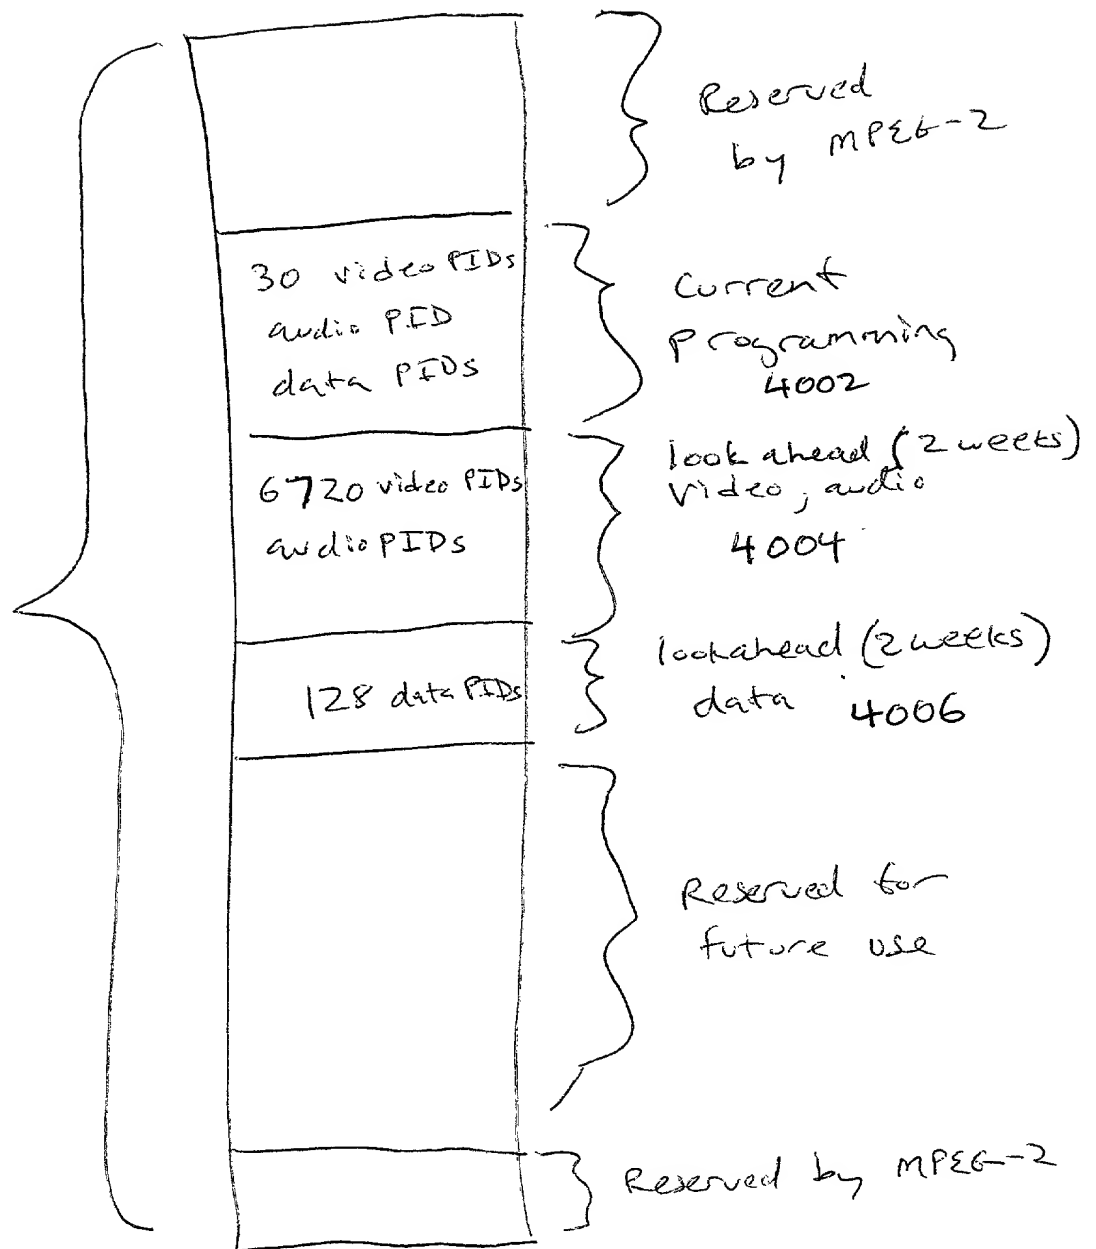 Reserved
by MPEG-2
30 video PIDs
audio PID
data PIDs
Current
Programming
4002
6720 video PIDs
audio PIDs
look ahead (2 weeks)
video, audio
4004
128 data PIDs
lookahead (2 weeks)
data 4006
Reserved for
future use
Reserved by MPEG-2